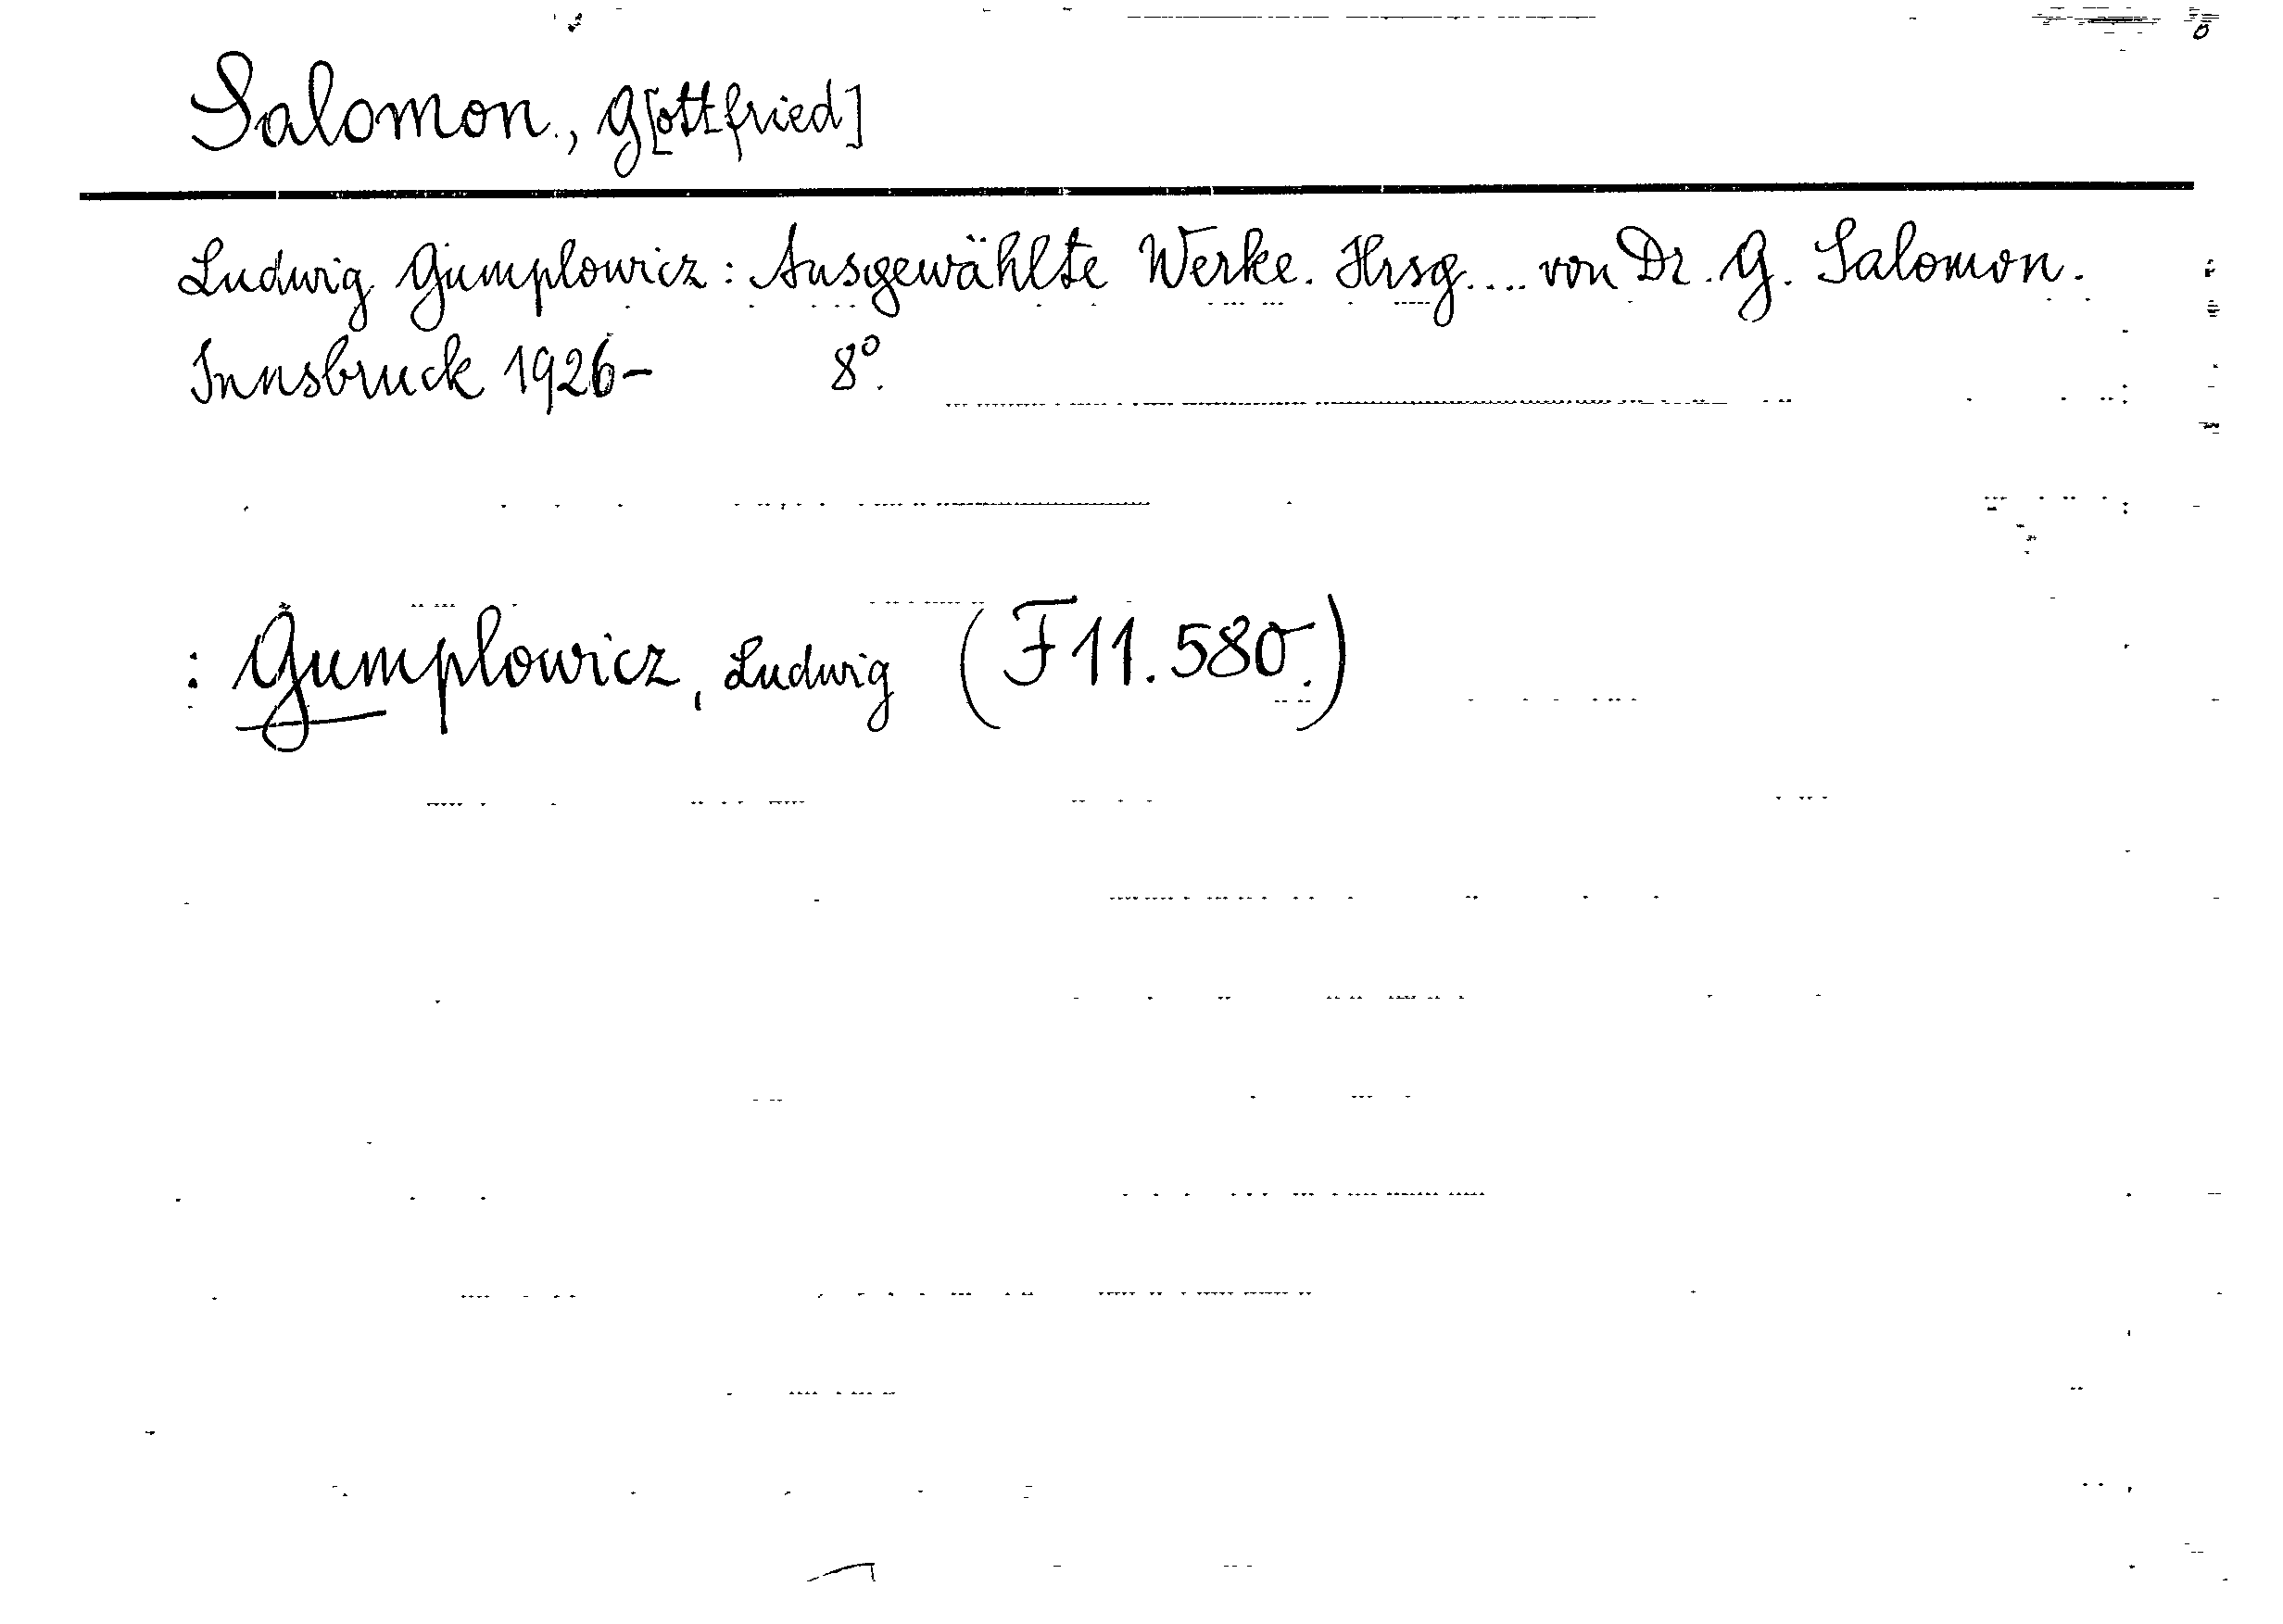 Salomon., G[ottfried]
Ludwig Gumplowicz: Ausgewählte Werke. Hrsg.... von Dr. G. Salomon.
Innsbruck 1926- 8°.
: Gumplowicz, Ludwig (F 11.580.)